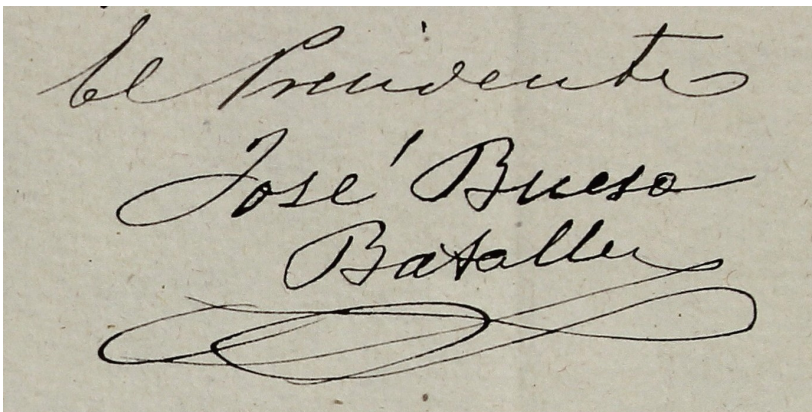 El Presidente
José Bueso
Bataller